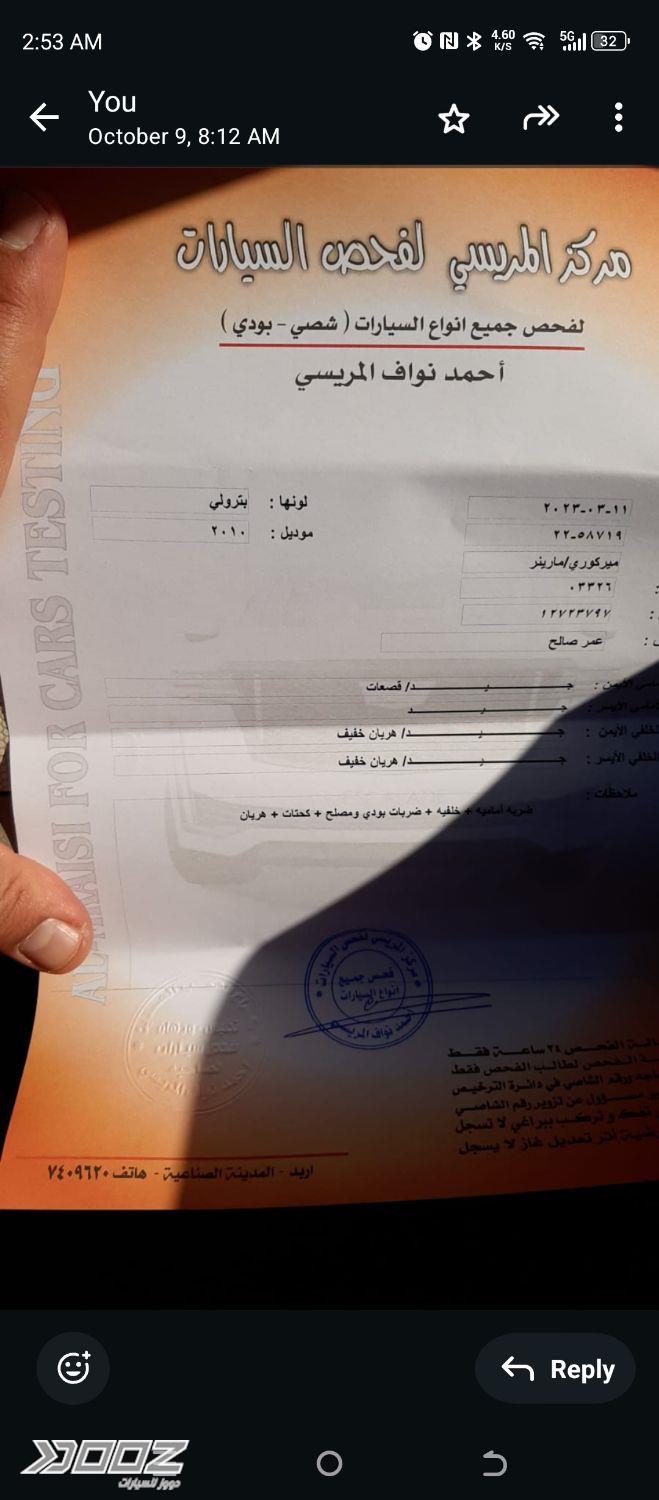 2:53 AM
4.60 K/S
5G
32
You
October 9, 8:12 AM
مركز المريسي لفحص السيارات
لفحص جميع انواع السيارات ( شصي - بودي )
أحمد نواف المريسي
٢٠٢٣-٠٣-١١
لونها : بترولي
٢٢-٥٨٧١٩
موديل : ٢٠١٠
ميركوري/مارينر
٠٣٣٢٦
١٢٧٢٣٧٩٧
عمر صالح
الأيمن : جـــيـــد/ قصعات
الأيسر : جـــيـــد
الخلفي الأيمن : جـــيـــد/ هريان خفيف
الخلفي الأيسر : جـــيـــد/ هريان خفيف
ملاحظات :
ضربه أماميه + خلفيه + ضربات بودي ومصلح + كحتات + هريان
AL-MRAISI FOR CARS TESTING
مركز المريسي لفحص السيارات
فحص جميع
انواع السيارات
احمد نواف المريسي
الفحص ٢٤ ساعة فقط
الفحص لطالب الفحص فقط
ورقم الشاصي في دائرة الترخيص
مسؤول عن تزوير رقم الشاصي
وتركب ببراغي لا تسجل
اثر تعديل غاز لا يسجل
اربد - المدينة الصناعية - هاتف ٧٤٠٩٦٢٠
Reply
DOOZ
دووز للسيارات